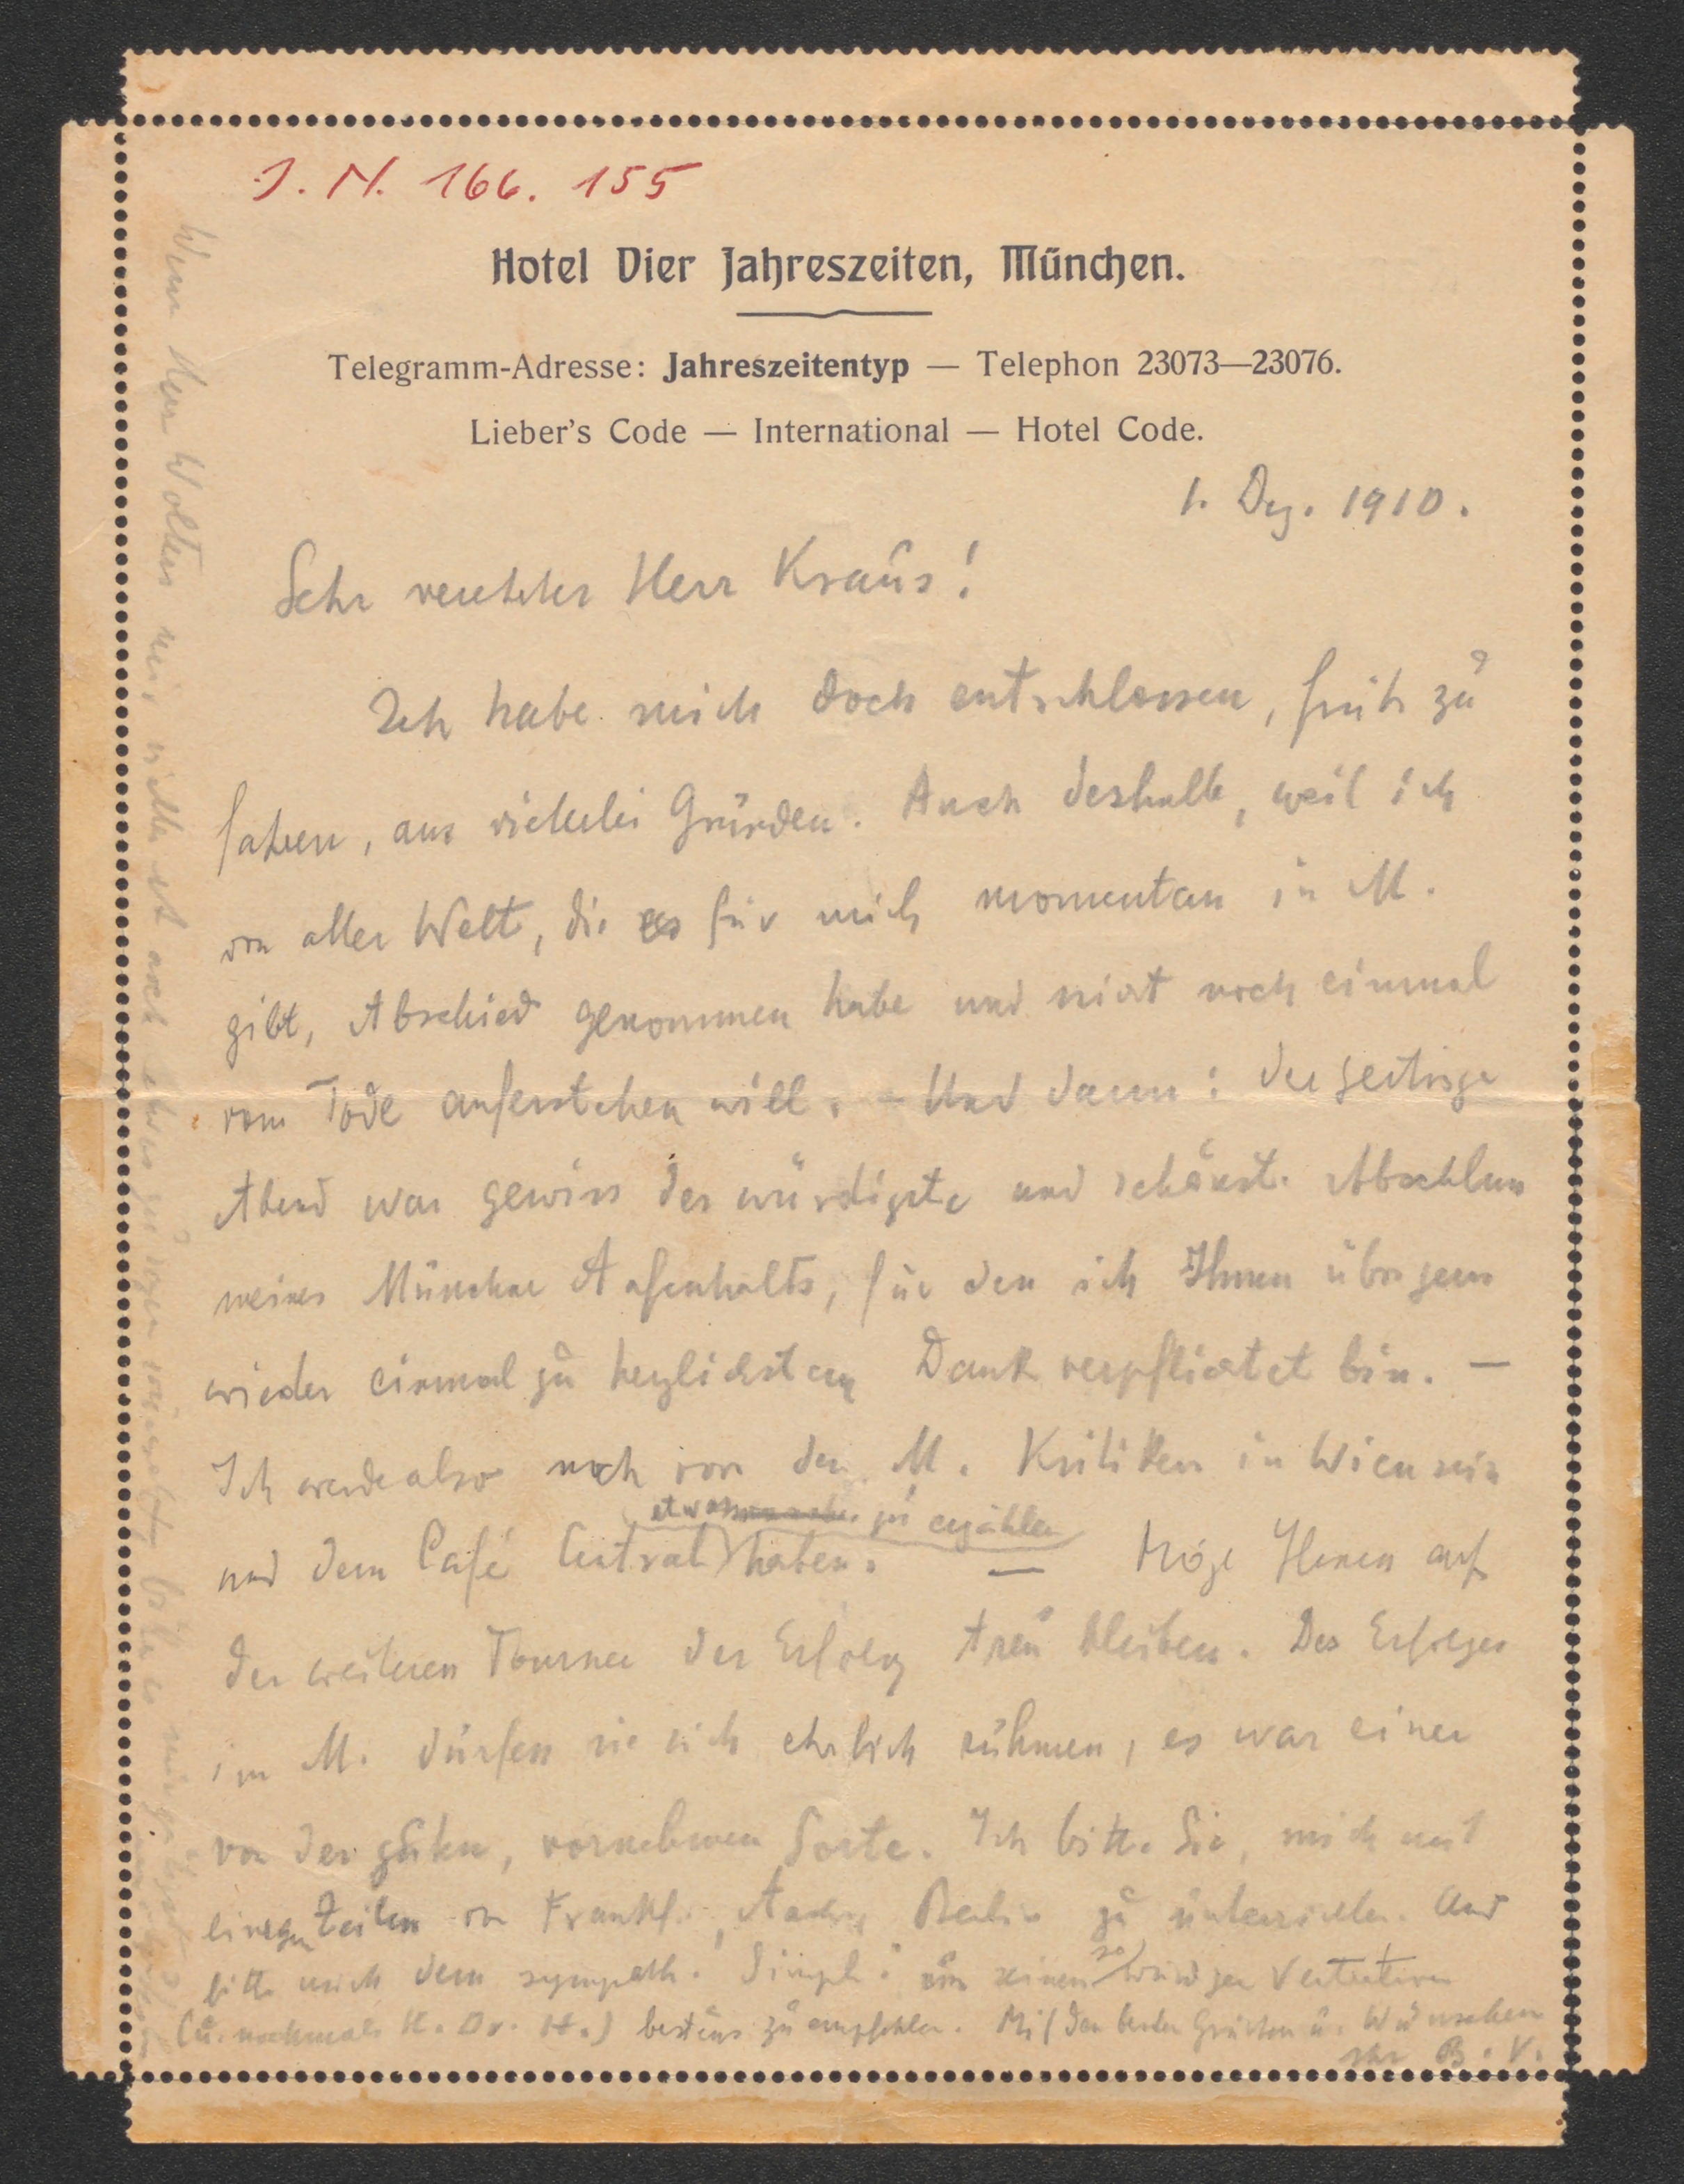 J. N. 166. 155
Hotel Vier Jahreszeiten, München.
Telegramm-Adresse: Jahreszeitentyp — Telephon 23073—23076.
Lieber's Code — International — Hotel Code.
1. Dez. 1910.
Sehr verehrter Herr Kraus!
Ich habe mich doch entschlossen, früh zu
fahren, aus vielerlei Gründen. Auch deshalb, weil ich
von aller Welt, die es für mich momentan in M.
gibt, Abschied genommen habe und nicht noch einmal
vom Tode auferstehen will. – Und dann: der gestrige
Abend war gewiss der würdigste und schönste Abschluss
meines Münchner Aufenthalts, für den ich Ihnen übrigens
wieder einmal zu herzlichstem Dank verpflichtet bin. —
Ich werde also noch von den M. Kritiken in Wien mir
etwas zu erzählen
und dem Café Central haben. — Möge Ihnen auf
der weiteren Tournee der Erfolg treu bleiben. Des Erfolges
in M. dürfen sie sich ehrlich rühmen, es war einer
von der guten, vornehmen Sorte. Ich bitte Sie, mich mit
einigen Zeilen von Frankf., Berlin zu unterrichten. Und
bitte mich dem sympath. Simpl. seinen so würdigen Vertretern
(u. nochmals H. Dr. H.) bestens zu empfehlen. Mit den besten Grüssen u. Wünschen
Ihr B. V.
Wenn Herr Wolters mir nicht noch etwas zu sagen bitte es